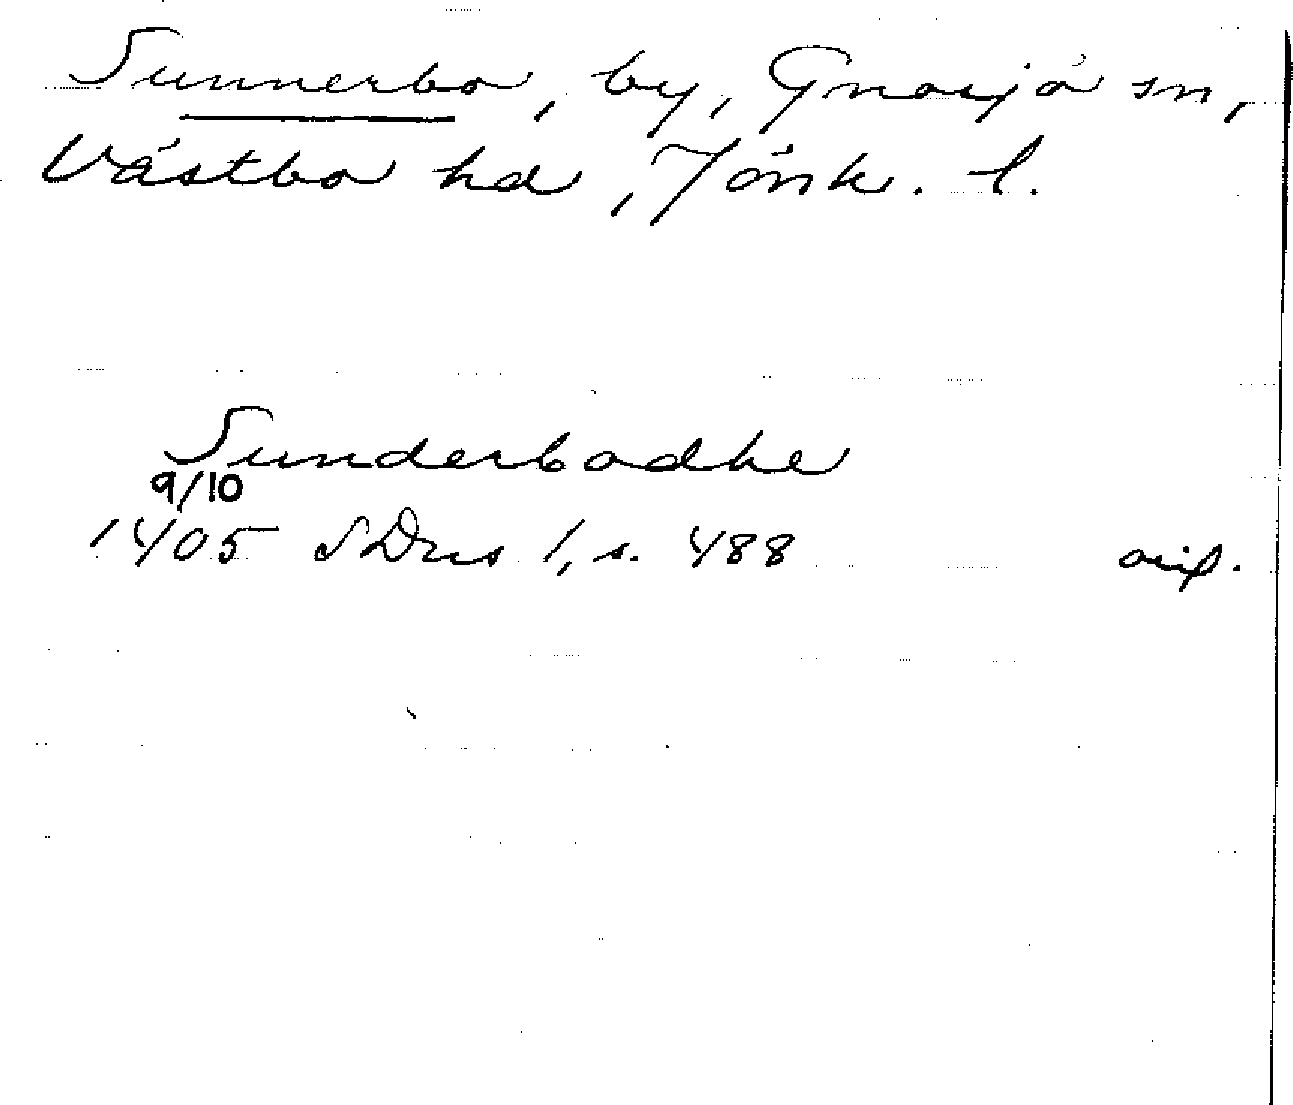 Sunnerbo, by, Gnosjö sn,
Västbo hd, Jönk. l.
Sunderbodhe
9/10
1405 SDns 1, s. 488 orig.